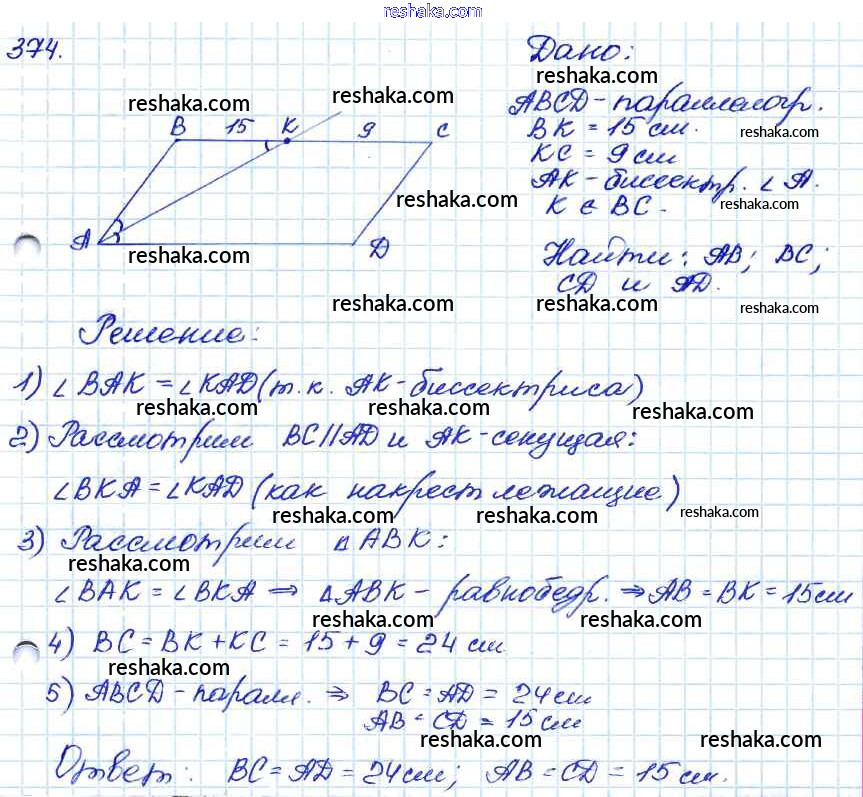 reshaka.com
374.
Дано:
reshaka.com
reshaka.com
reshaka.com
ABCD - параллелогр.
B 15 K 9 C
BK = 15 см.
reshaka.com
KC = 9 см
AK - биссектр. ∠A.
reshaka.com
reshaka.com
K ∈ BC.
A D
reshaka.com
Найти: AB; BC;
CD и AD.
reshaka.com
reshaka.com
reshaka.com
Решение:
1) ∠BAK = ∠KAD (т.к. AK - биссектриса)
reshaka.com
reshaka.com
reshaka.com
2) Рассмотрим BC || AD и AK - секущая:
∠BKA = ∠KAD (как накрест лежащие)
reshaka.com
reshaka.com
reshaka.com
3) Рассмотрим △ABK:
reshaka.com
∠BAK = ∠BKA ⇒ △ABK - равнобедр. ⇒ AB = BK = 15 см
reshaka.com
reshaka.com
4) BC = BK + KC = 15 + 9 = 24 см
reshaka.com
5) ABCD - паралл. ⇒ BC = AD = 24 см
AB = CD = 15 см
reshaka.com
reshaka.com
Ответ: BC = AD = 24 см; AB = CD = 15 см.